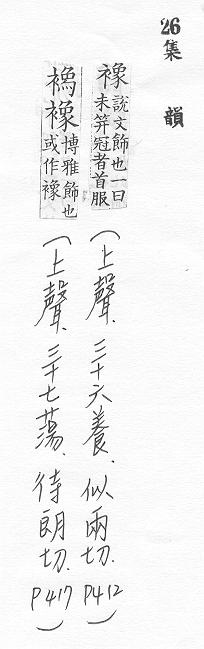 26集 韻
襐 說文飾也一曰
未笄冠者首服
（上聲、三十六養、似兩切、P412）
襐 博雅飾也
或作襐
（上聲、三十七蕩、待朗切、P417）